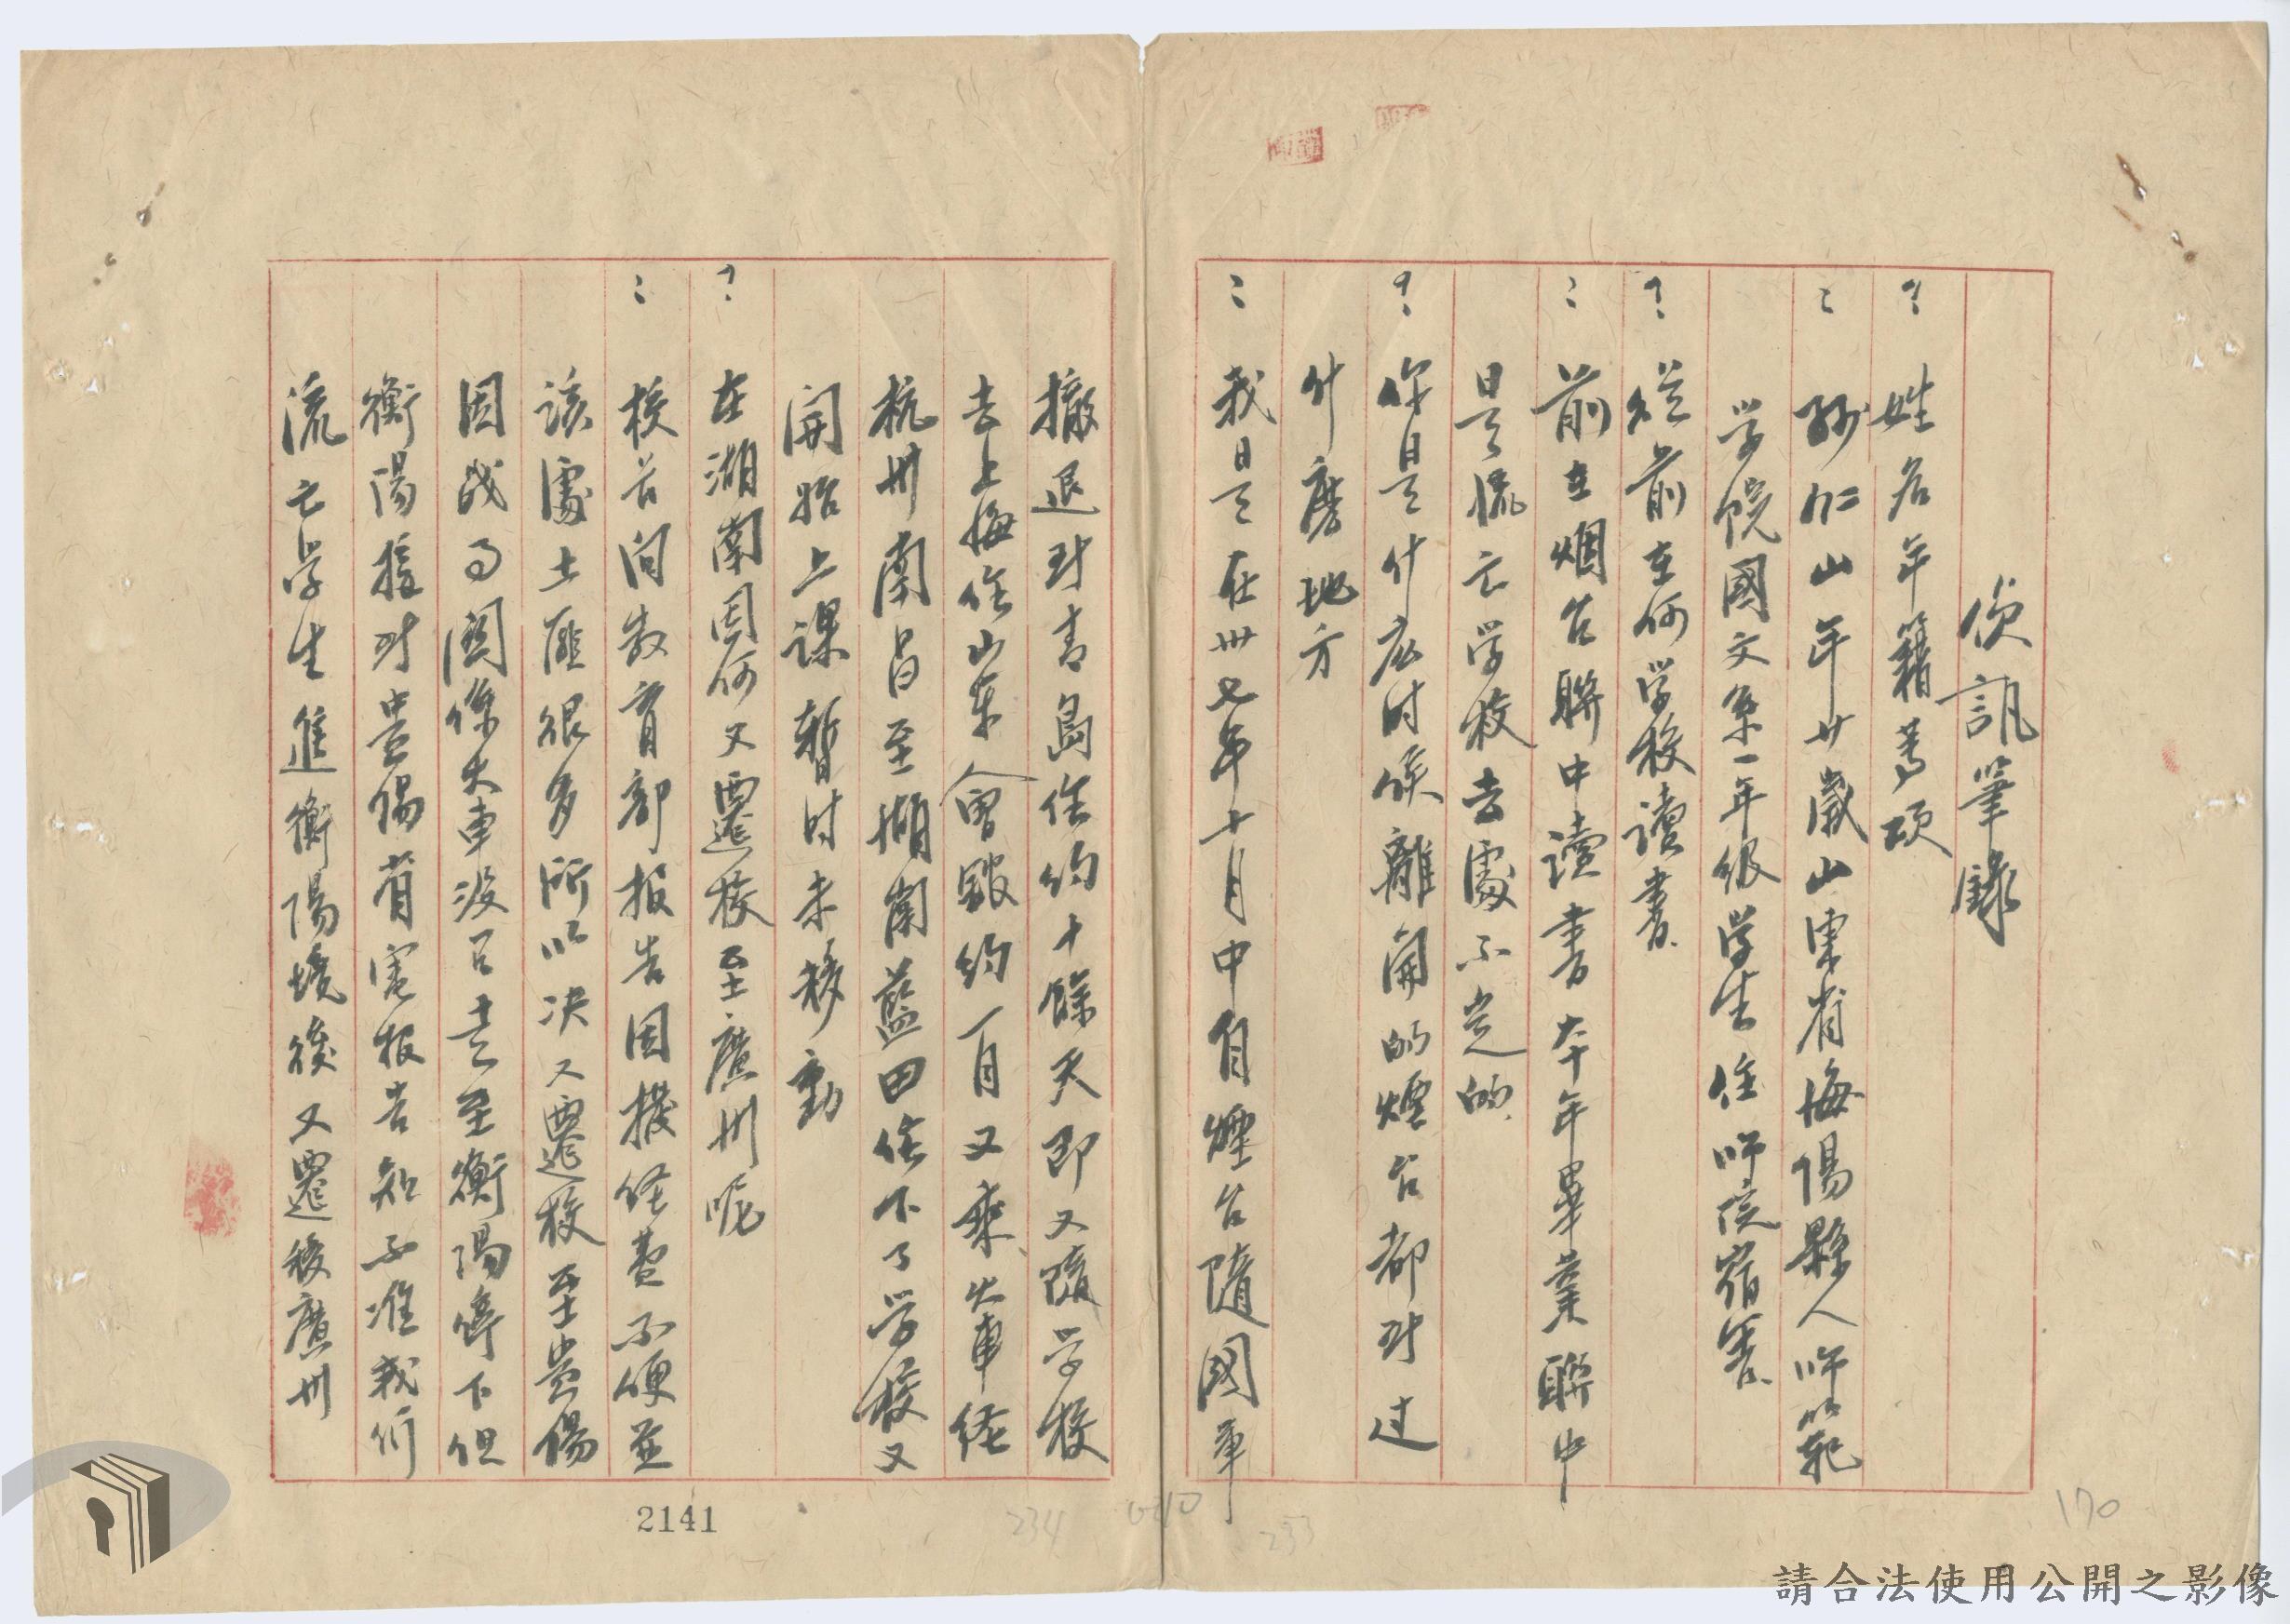 偵訊筆錄
? 姓名年籍等項
: 孫仁山年廿歲山東省海陽縣人師範
学院國文系一年級学生住师院宿舍
? 從前在何学校讀書
: 前在烟台聯中讀書本年畢業聯中
是流亡学校去處不定的
? 你是什庅时候離開的煙台都到过
什麽地方
: 我是在卅七年十月中自煙台隨國軍
撤退到青島住約十餘天即又隨学校
去上海住山東會館約一月又乘火車經
杭州南昌至湖南藍田住下了学校又
開始上課暫时未移動
? 在湖南因何又遷校至廣州呢
: 校長向敎育部报告因撥经费不便並
該處土匪很多所以决又遷校至貴陽
因战事關係火車没只走至衡陽停下但
衡陽接到貴陽有電报告知不准我们
流亡学生進衡陽境後又遷移廣州
2141
234
233
170
請合法使用公開之影像